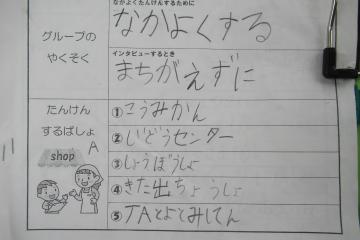 なかよくたんけんするために
グループの
やくそく
なかよくする
インタビューするとき
まちがえずに
たんけん
するばしょ
A
shop
①こうみかん
②じどうセンター
③しょうぼうしょ
④きた出ちょうしょ
⑤JAとよとみしてん